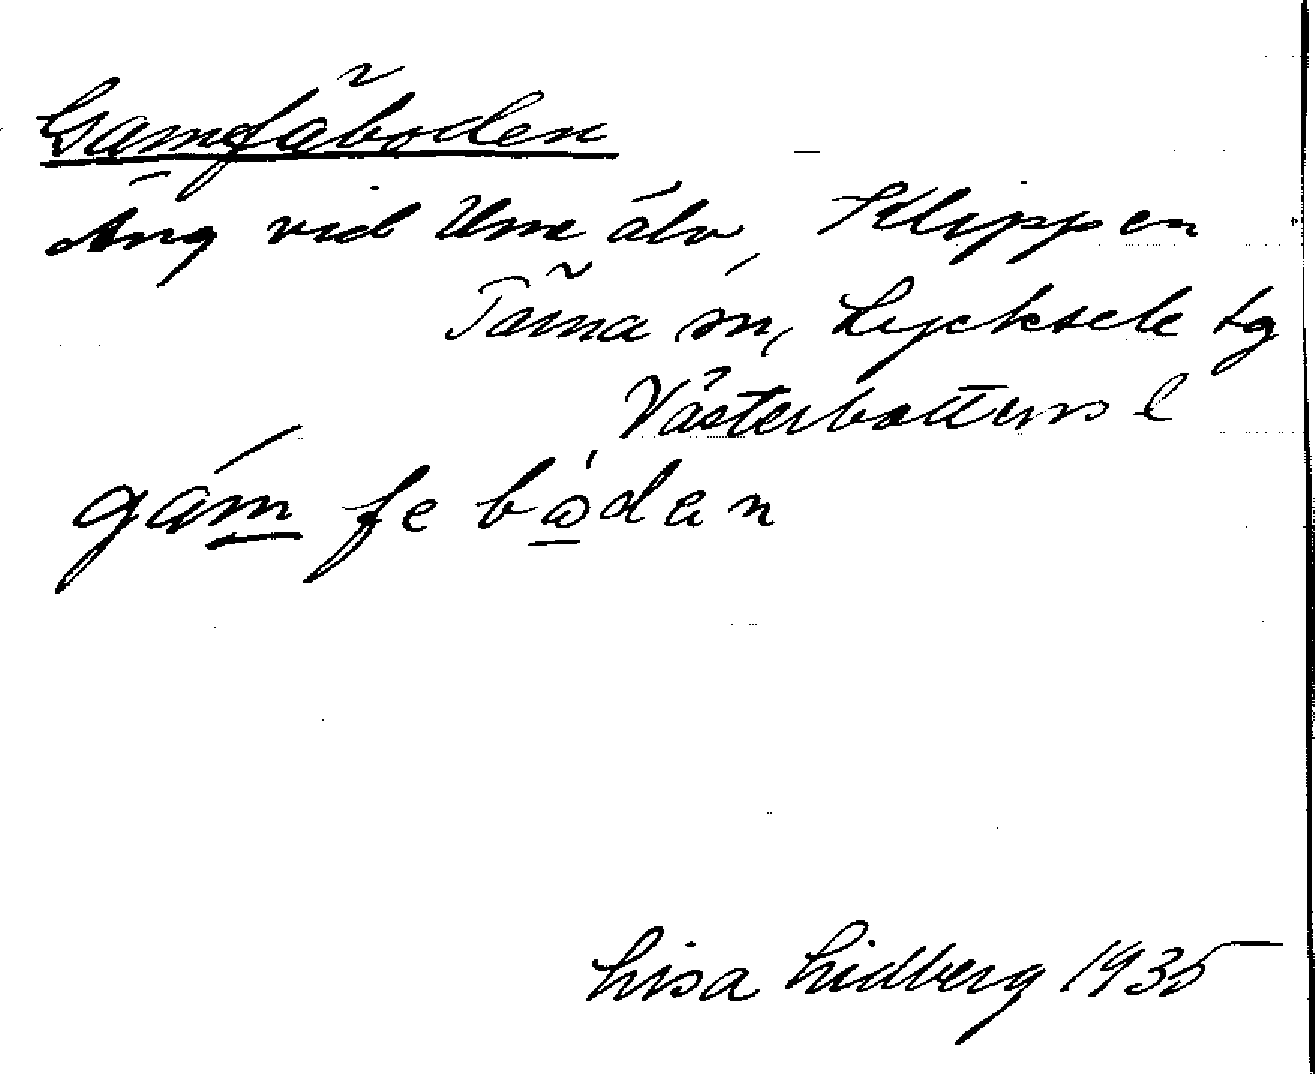 Gamfäboden
Äng vid Ume älv, Klippen
Tärna sn, Lycksele tg
Västerbottens l
gám febòdan
Lisa Lidberg 1935